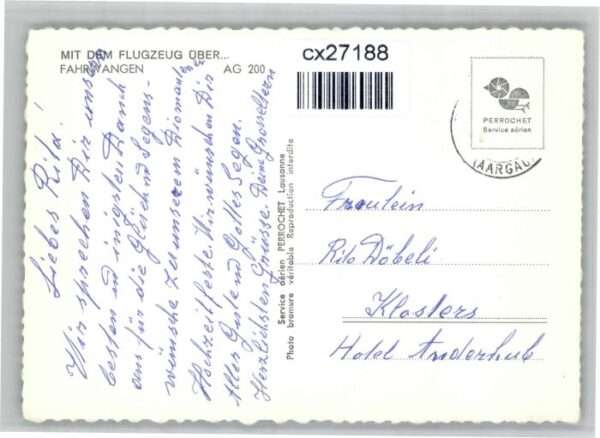 MIT DEM FLUGZEUG ÜBER...
FAHRWANGEN AG 200
cx27188
PERROCHET
Service aérien
(AARGAU)
Liebes Rita!
Wir sprechen Dir unsern
besten und innigsten Dank
aus für die Glück und Segens-
wünsche zu unserem Diamanten
Hochzeitfeste. Wir wünschen Dir
Alles Gute und Gottes Segen.
Herzlichsten Grüsse Deine Grosseltern
Photo Service aérien PERROCHET Lausanne
Photo bromure véritable Reproduction interdite
Fräulein
Rita Döbeli
Klosters
Hotel Anderhub